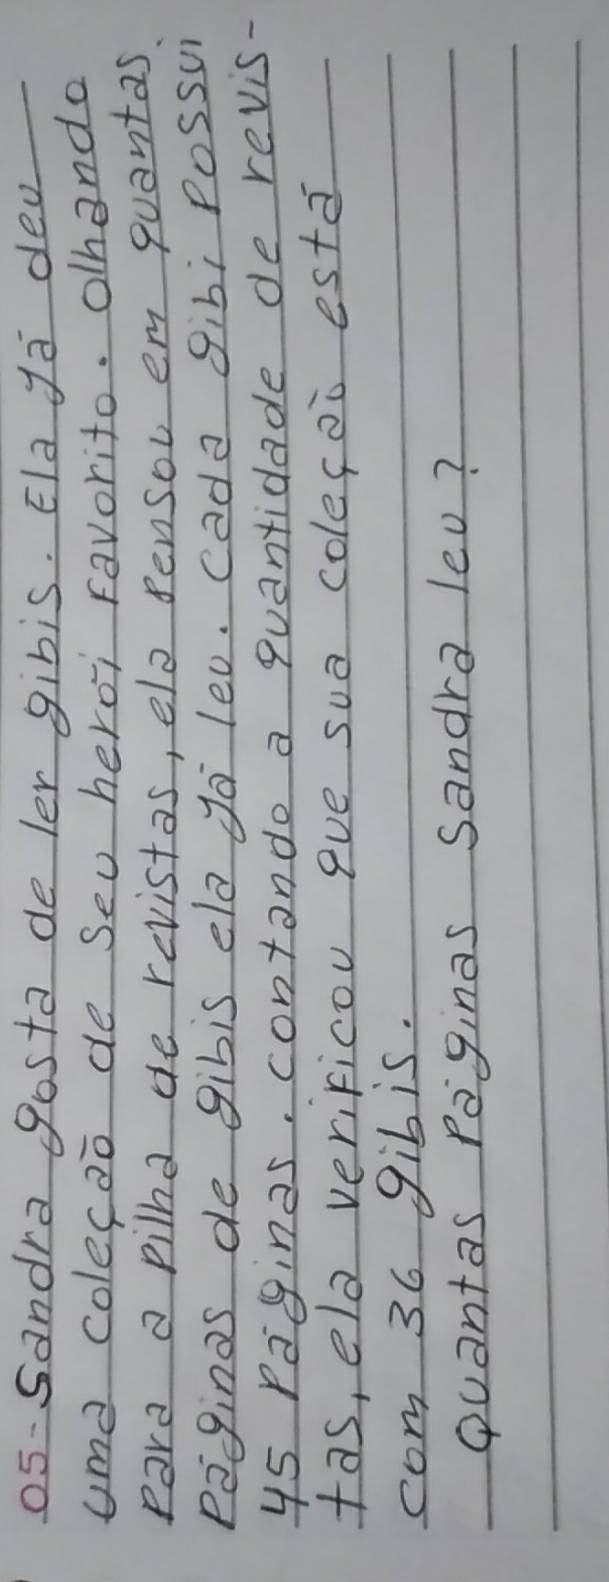 05- Sandra gosta de ler gibis. Ela já deu
uma coleção de seu herói favorito. Olhando
para a pilha de revistas, ela pensou em quantas
páginas de gibis ela já leu. Cada gibi possui
45 páginas. Contando a quantidade de revis-
tas, ela verificou que sua coleção está
com 36 gibis.
Quantas páginas Sandra leu?